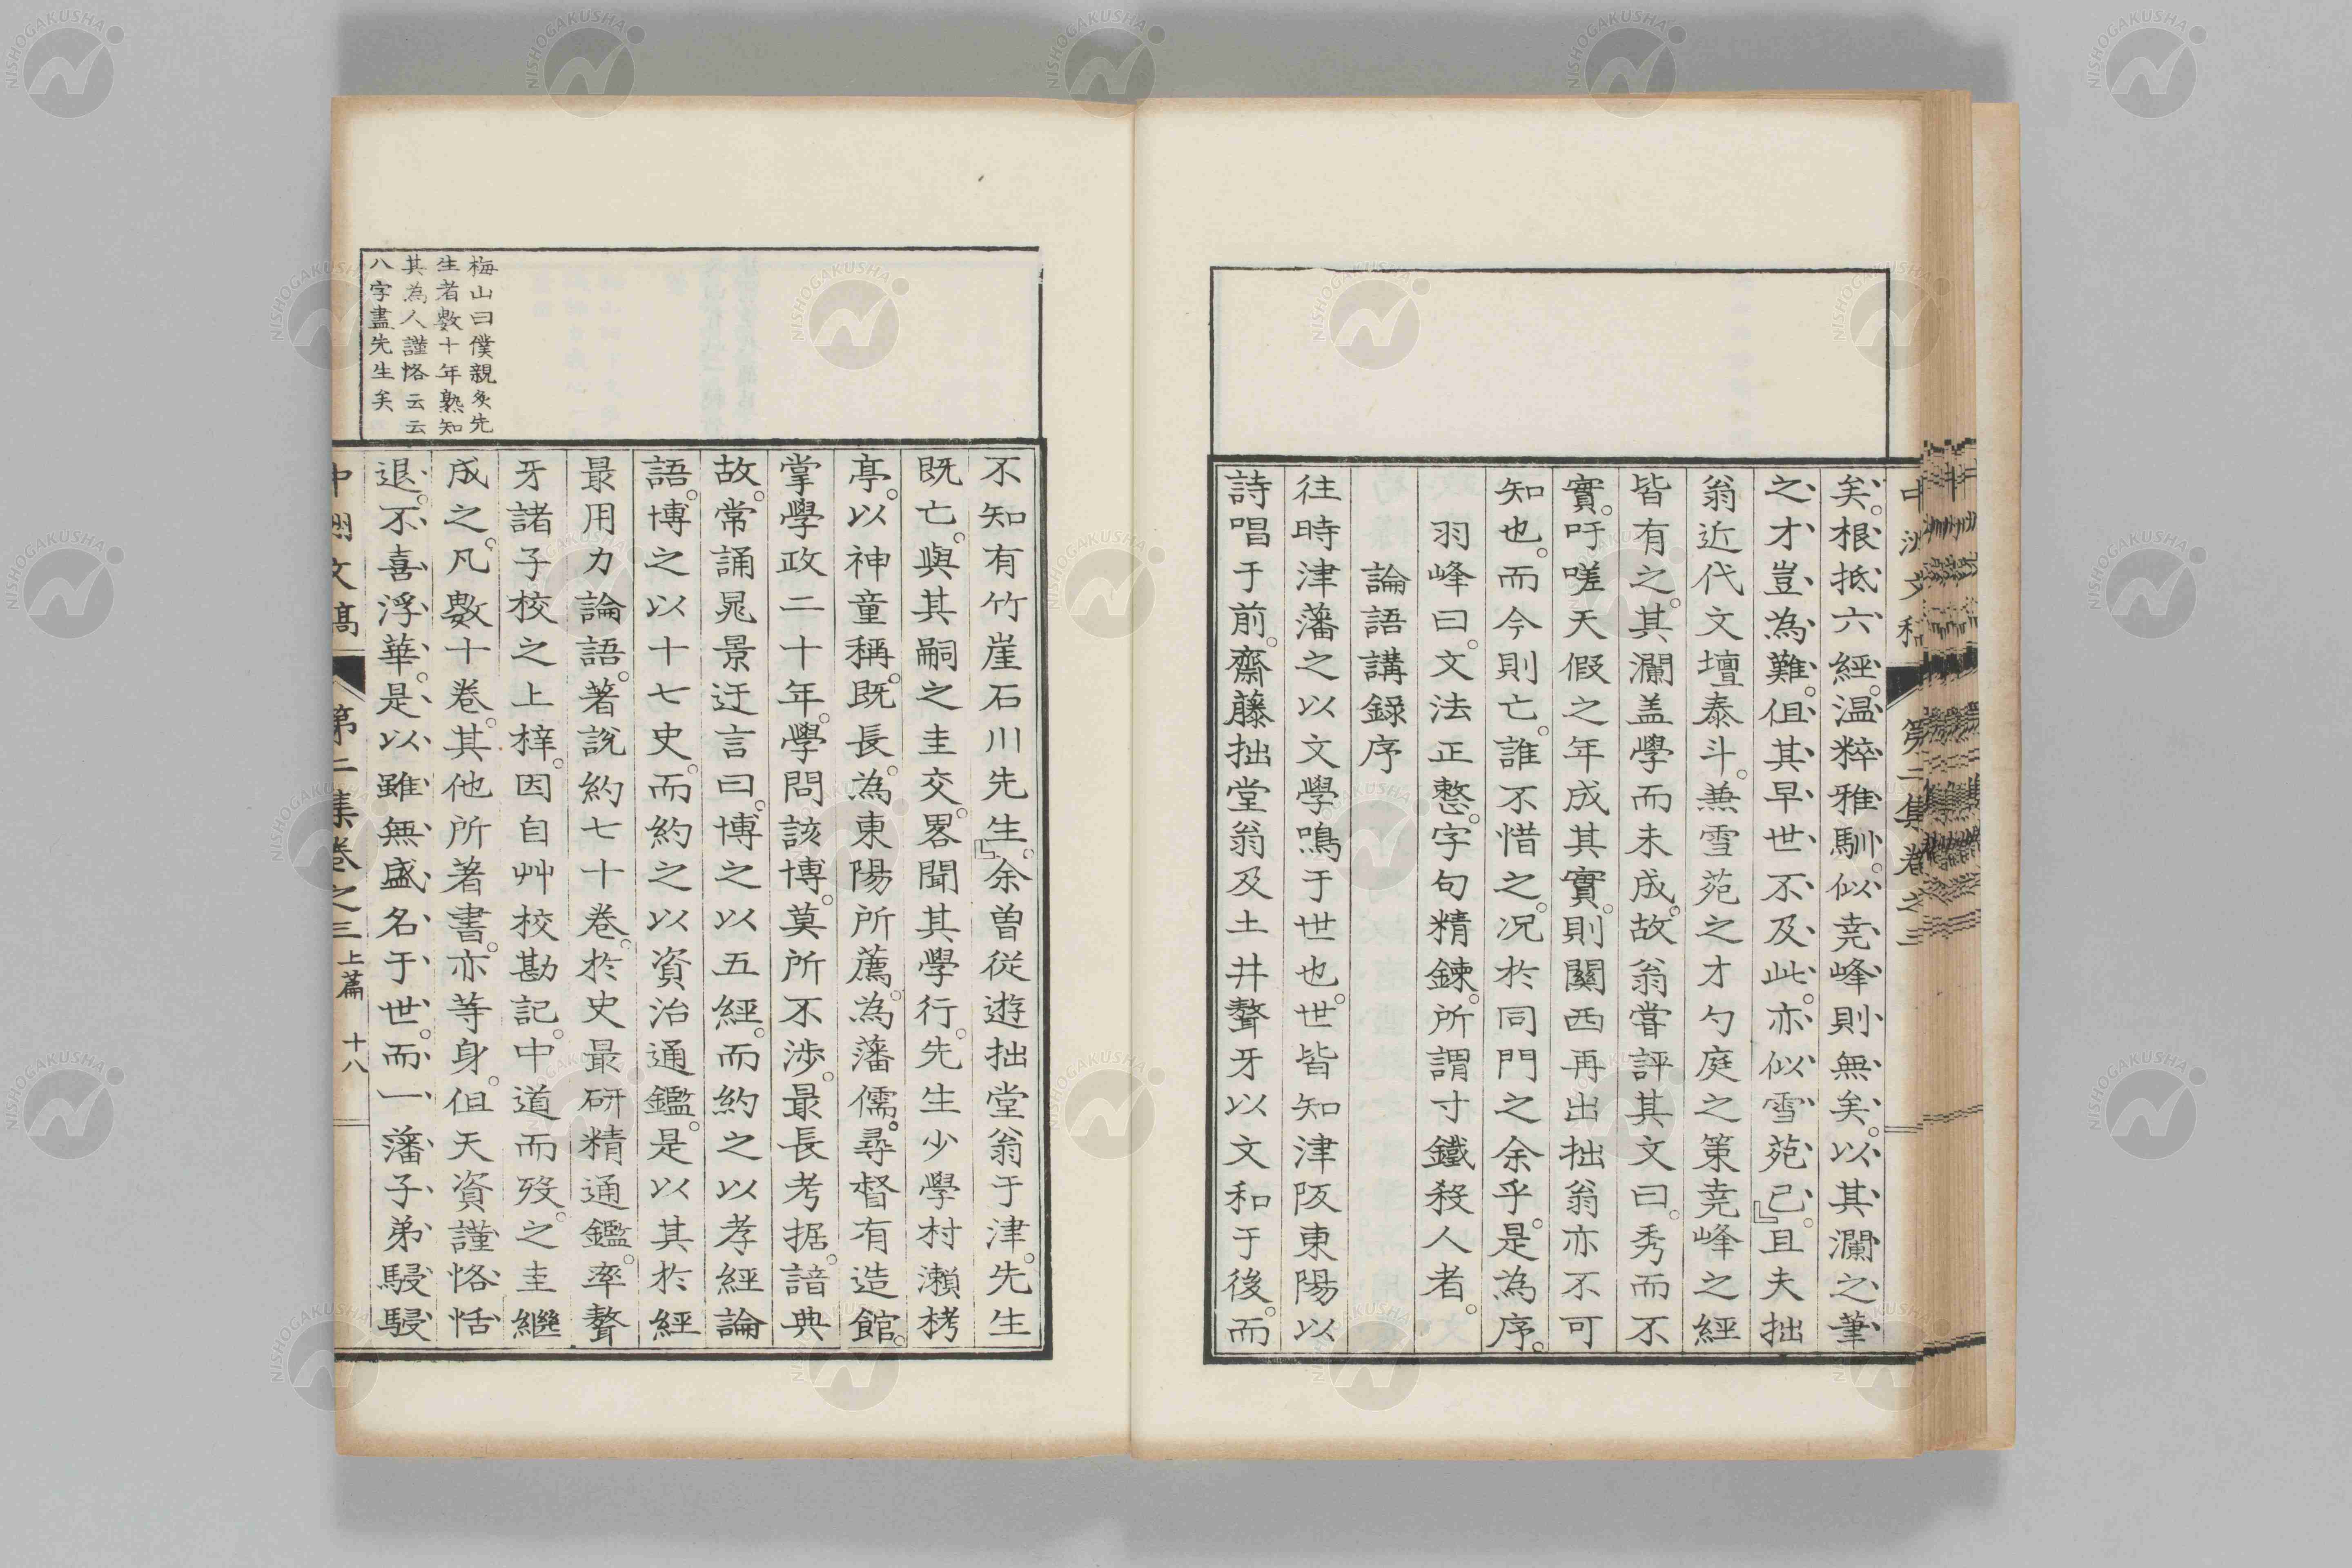 矣。根抵六經。温粹雅馴。似尭峰則無矣。以其瀾之筆
之才豈為難。但其早世不及此。亦似雪苑已。」且夫拙
翁近代文壇泰斗。兼雪苑之才勺庭之策尭峰之經
皆有之。其瀾盖學而未成。故翁嘗評其文曰。秀而不
實。吁嗟天假之年成其實。則關西再出拙翁亦不可
知也。而今則亡。誰不惜之。况於同門之余乎。是為序。
羽峰曰。文法正整。字句精鍊。所謂寸鐵殺人者。
論語講録序
往時津藩之以文學鳴于世也。世皆知津阪東陽以
詩唱于前。齋藤拙堂翁及土井聱牙以文和于後。而
不知有竹崖石川先生。」余曽從遊拙堂翁于津。先生
既亡。與其嗣之圭交。畧聞其學行。先生少學村瀨栲
亭。以神童稱。既長。為東陽所薦。為藩儒。尋督有造館。
掌學政二十年。學問該博。莫所不渉。最長考据。諳典
故。常誦晁景迂言曰。博之以五經。而約之以孝經論
語。博之以十七史。而約之以資治通鑑。是以其於經
最用力論語。著説約七十卷。於史最研精通鑑。率聱
牙諸子校之上梓。因自艸校勘記。中道而歿。之圭繼
成之。凡數十卷。其他所著書。亦等身。但天資謹恪恬
退。不喜浮華。是以雖無盛名于世。而一藩子弟駸駸
梅山曰僕親炙先
生者數十年熟知
其為人謹恪云云
八字盡先生矣
中洲文稿 第二集卷之三 上篇 十八